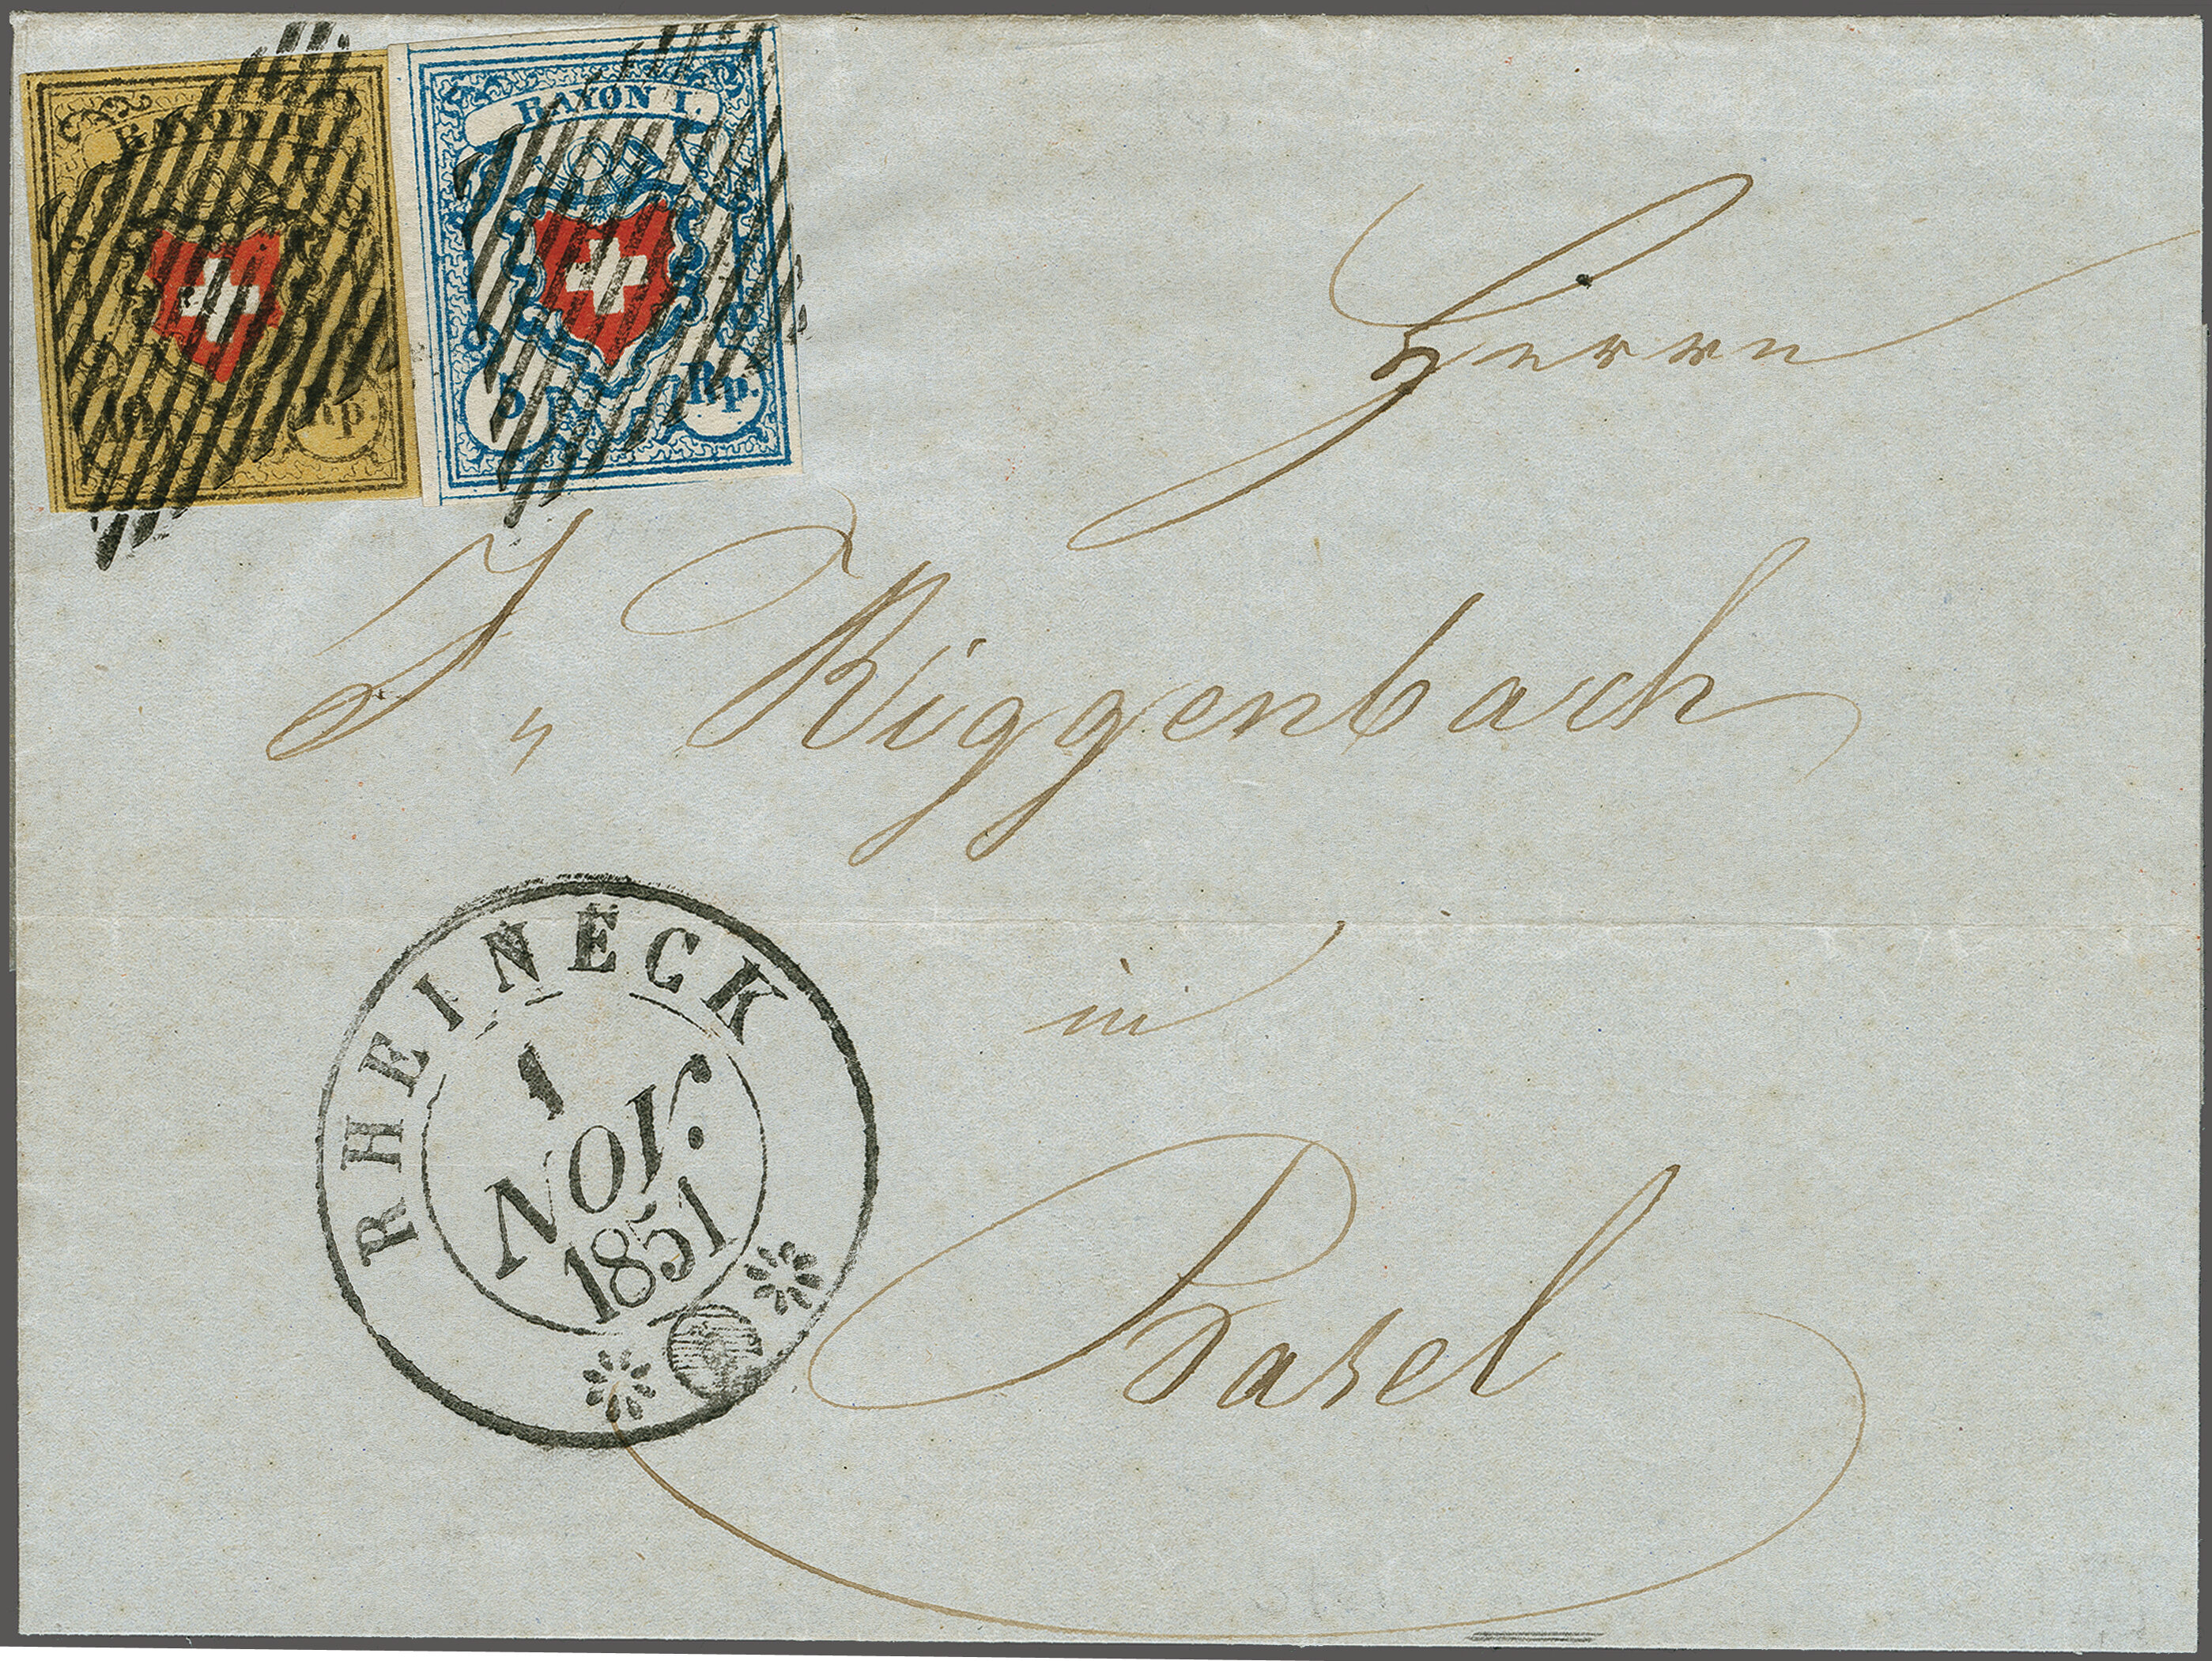 RAYON II.
Rp.
RAYON I.
5 Rp.
Herrn
J„ Riggenbach
in
Basel
RHEINECK
1
NOV.
1851